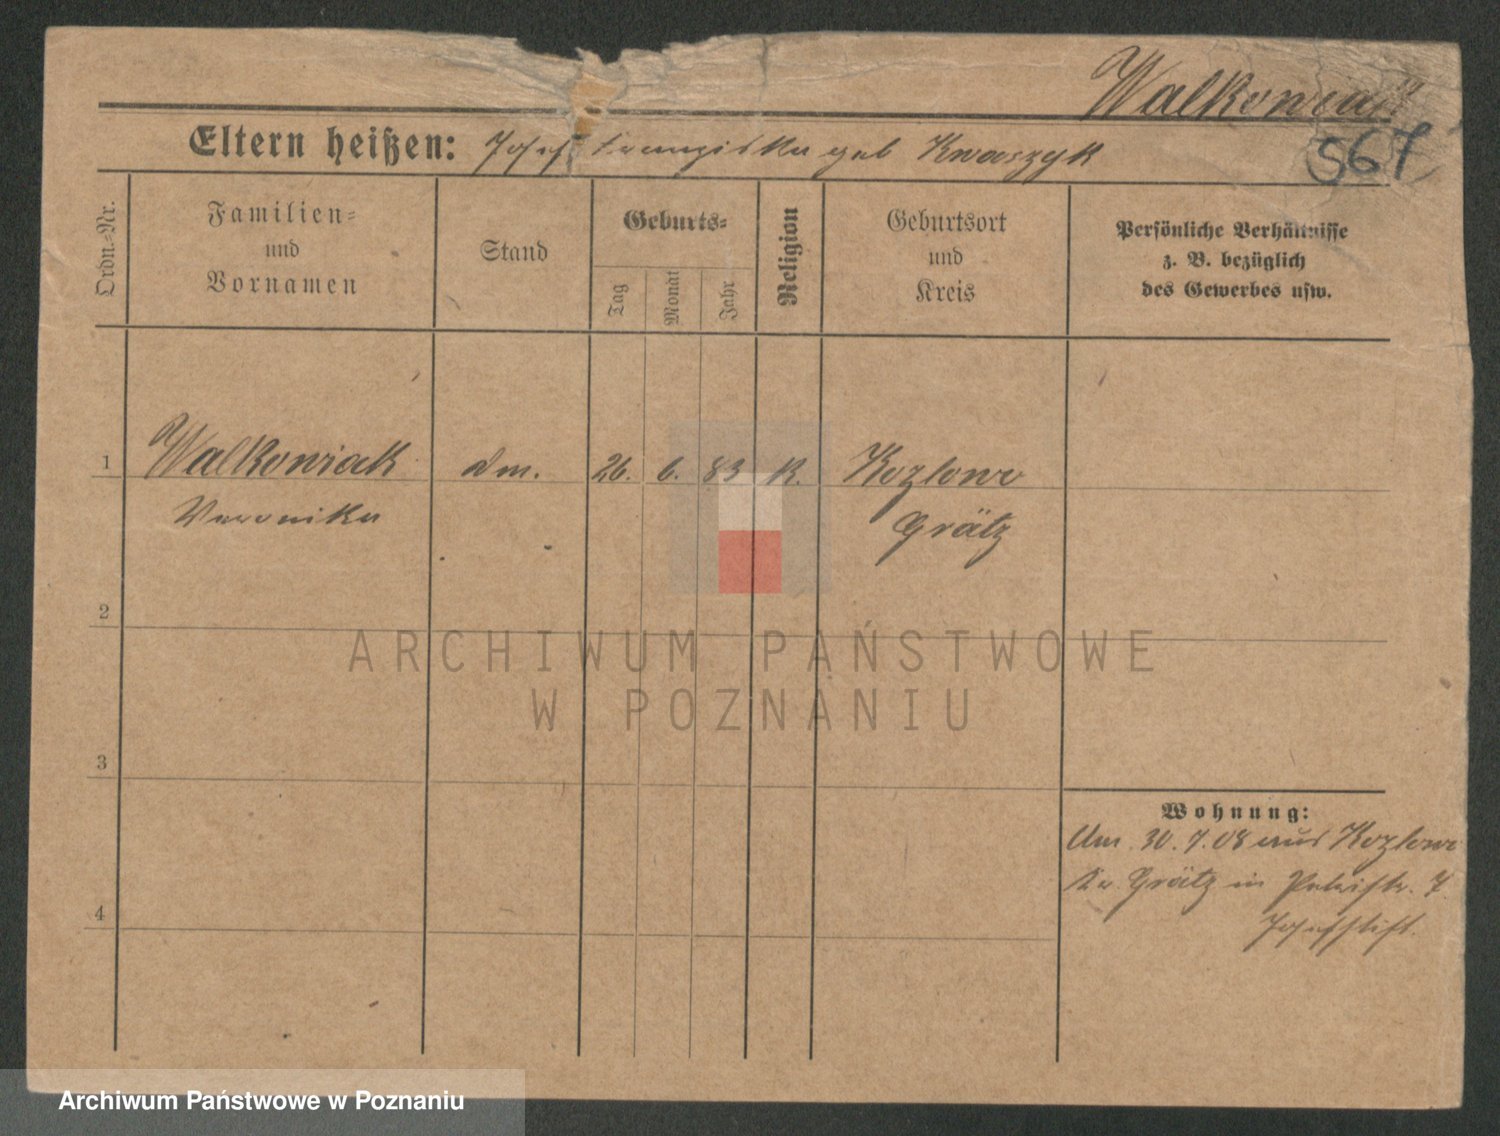 Walkowiak
567
Eltern heißen: Josef Franziska geb Kwaszyk
Ordn.-Nr.
Familien-
und
Vornamen
Stand
Geburts-
Tag
Monat
Jahr
Religion
Geburtsort
und
Kreis
Persönliche Verhältnisse
z. B. bezüglich
des Gewerbes usw.
1 Walkowiak 26. 6. 83 K. Kozlowo
Veronika Grätz
2
ARCHIWUM PAŃSTWOWE
W POZNANIU
3
Wohnung:
Am 30.7.08 aus Kozlowo
Kr. Grätz in Petristr. 7
4
Josefstift.
Archiwum Państwowe w Poznaniu